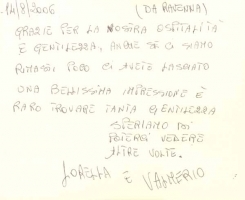 14/8/2006 (DA RAVENNA)
GRAZIE PER LA VOSTRA OSPITALITÀ
E GENTILEZZA, ANCHE SE CI SIAMO
RIMASTI POCO CI AVETE LASCIATO
UNA BELLISSIMA IMPRESSIONE È
RARO TROVARE TANTA GENTILEZZA
SPERIAMO DI
POTERCI VEDERE
ALTRE VOLTE.
LORELLA E VALMERIO